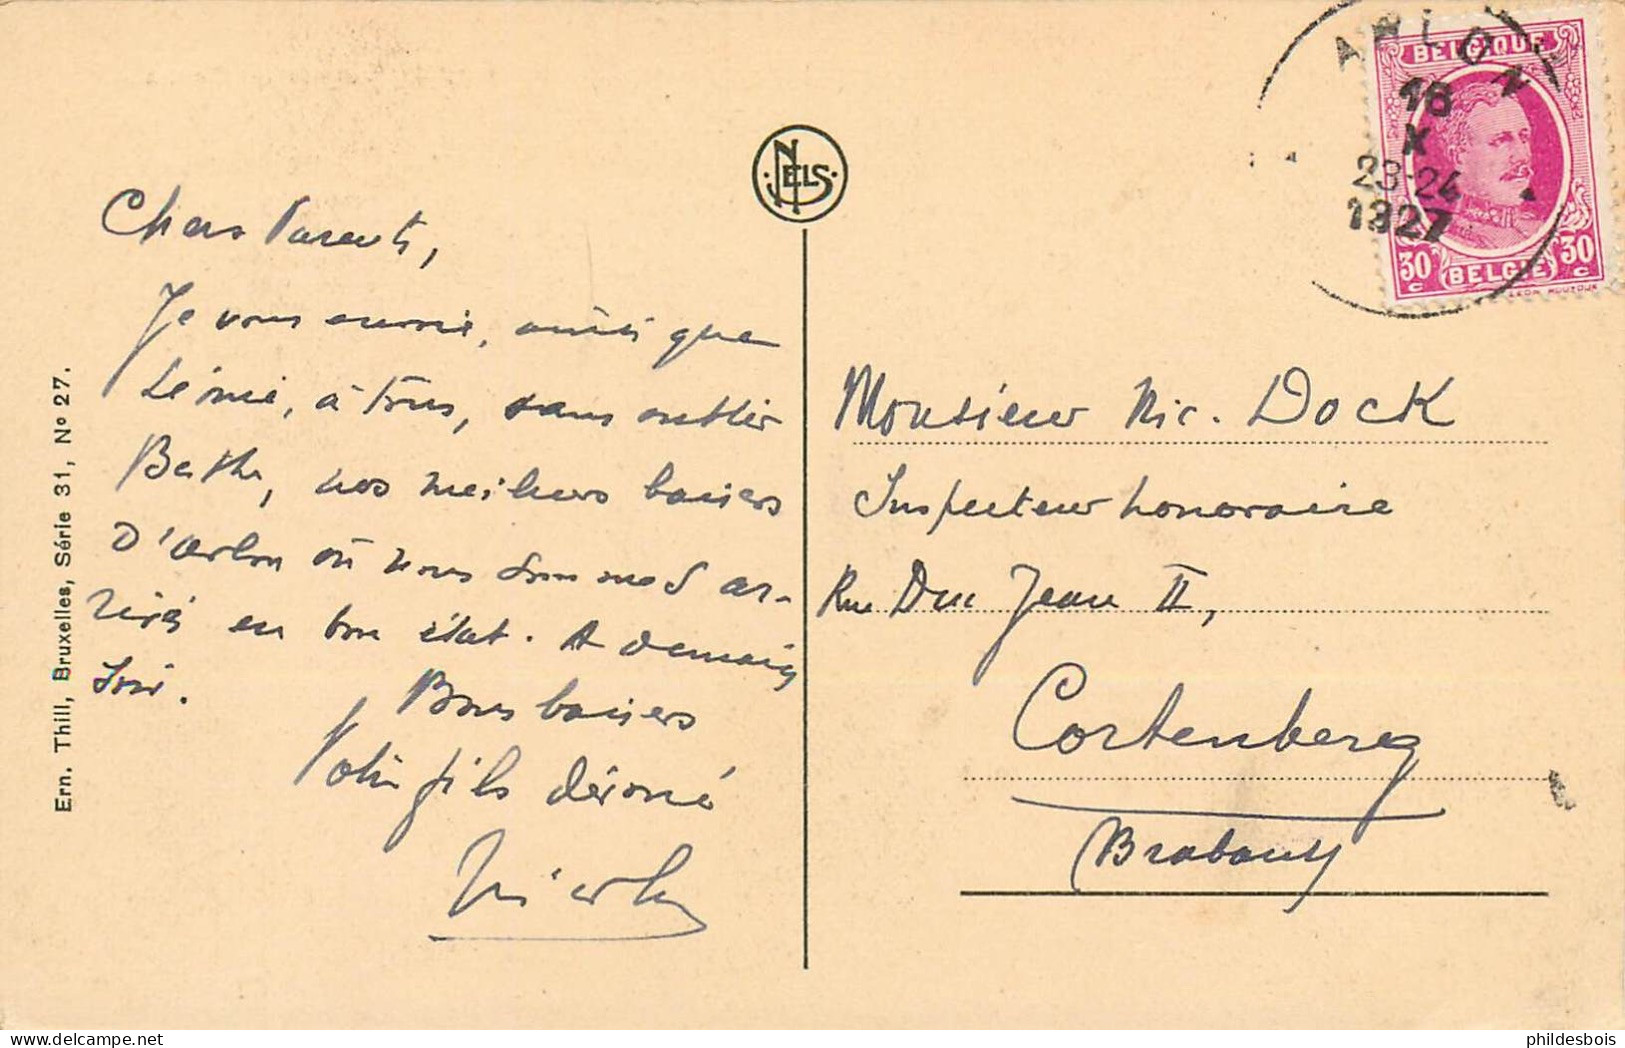 Chers Parents,
Je vous envoie, ainsi que
Lénie, à tous, sans oublier
Berthe, nos meilleurs baisers
D'Arlon où nous sommes ar-
rivés en bon état. A demain
soir.
Bons baisers
Votre fils dévoué
Ern. Thill, Bruxelles, Série 31, Nº 27.
NELS
ARLON
18
X
23-24
1927
BELGIQUE
30 c BELGIË 30 c
Monsieur Nic. Dock
Inspecteur honoraire
Rue Duc Jean II,
Cortenberg
Brabant
phildesbois